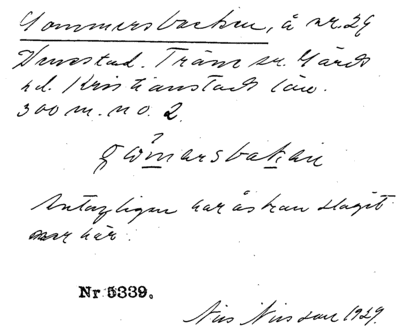 Gommersbacken, å nr. 29
Domestad. Träne sn. Gärds
hd. Kristianstads län.
300 m. no. 2.
Antagligen har åskan slagit
ner här.
Nr 5339.
Nils Nilsson 1929.